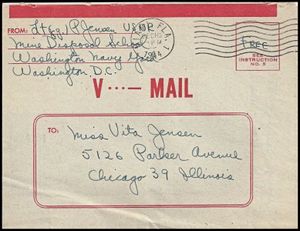 FROM: Lt(jg) P Jensen USNR
Mine Disposal School
Washington Navy Yard
Washington D.C.
FLA.
Free
SEE
INSTRUCTION
NO. 5
V···—MAIL
TO:
Miss Vita Jensen
5126 Parker Avenue
Chicago 39 Illinois